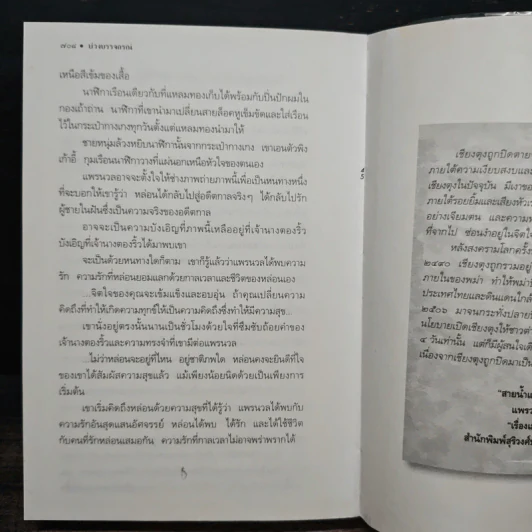 ๗๐๘ • บ่วงบรรจถรณ์
เหนือสีเข้มของเสื้อ
นาฬิกาเรือนเดียวกับที่แหลมทองเก็บได้พร้อมกับปิ่นปักผมใน
กองเถ้าถ่าน นาฬิกาที่เขานำมาเปลี่ยนสายล็อคหูเข็มขัดและใส่เรือน
ไว้ในกระเป๋ากางเกงทุกวันตั้งแต่แหลมทองนำมาให้
ชายหนุ่มล้วงหยิบนาฬิกานั้นจากกระเป๋ากางเกง เขาเอนตัวพิง
เก้าอี้ กุมเรือนนาฬิกาวางที่แผ่นอกเหนือหัวใจของตนเอง
แพรนวลอาจจะตั้งใจให้ช่างภาพถ่ายภาพนี้เพื่อเป็นหนทางหนึ่ง
ที่จะบอกให้เขารู้ว่า หล่อนได้กลับไปสู่อดีตกาลจริงๆ ได้กลับไปรัก
ผู้ชายในฝันซึ่งเป็นความจริงของอดีตกาล
อาจจะเป็นความบังเอิญที่ภาพนี้เหลืออยู่ที่เจ้านางตองริ้ว
บังเอิญที่เจ้านางตองริ้วได้มาพบเขา
จะเป็นด้วยหนทางใดก็ตาม เขาก็รู้แล้วว่าแพรนวลได้พบความ
รัก ความรักที่หล่อนยอมแลกด้วยกาลเวลาและชีวิตของหล่อนเอง
...จิตใจของคุณจะเข้มแข็งและอบอุ่น ถ้าคุณเปลี่ยนความ
คิดถึงที่ทำให้เกิดความทุกข์ให้เป็นความคิดถึงซึ่งทำให้มีความสุข...
เขานั่งอยู่ตรงนั้นนานเป็นชั่วโมงด้วยใจที่ซึมซับถ้อยคำของ
เจ้านางตองริ้วและความทรงจำที่เขามีต่อแพรนวล
...ไม่ว่าหล่อนจะอยู่ที่ไหน อยู่ชาติภพใด หล่อนคงจะยินดีที่ใจ
ของเขาได้สัมผัสความสุขแล้ว แม้เพียงน้อยนิดด้วยเป็นเพียงการ
เริ่มต้น
เขาเริ่มคิดถึงหล่อนด้วยความสุขที่ได้รู้ว่า แพรนวลได้พบกับ
ความรักอันสุดแสนอัศจรรย์ หล่อนได้พบ ได้รัก และได้ใช้ชีวิต
กับคนที่รักหล่อนเสมอกัน ความรักที่กาลเวลาไม่อาจพร่าพรากได้
เชียงตุงถูกปิดตาย
ภายใต้ความเงียบสงบและ
เชียงตุงในปัจจุบัน มีเงาของ
ภายใต้รอยยิ้มและเสียงหัว
อย่างเจียมตน และความ
ที่จากไป ซ่อนงำอยู่ในจิตใจ
หลังสงครามโลกครั้ง
๒๔๙๐ เชียงตุงถูกรวมอยู่
ภายในของพม่า ทำให้พม่า
ประเทศไทยและดินแดนใกล้
๒๕๐๖ มาจนกระทั่งปลาย
นโยบายเปิดเชียงตุงให้ชาวต่าง
๔ วันเท่านั้น แต่ก็มีผู้สนใจ
เนื่องจากเชียงตุงถูกปิดมาเป็น
"สายน้ำ
แพร
"เรื่อง
สำนักพิมพ์สุริวงศ์